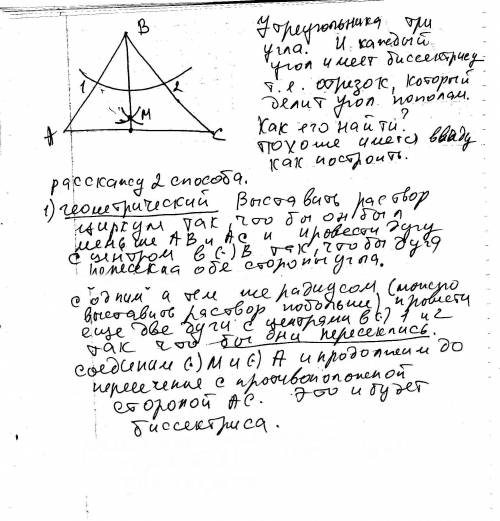 B
1
2
M
A
C
У треугольника три
угла. И каждый
угол имеет биссектрису
т.е. отрезок, который
делит угол пополам.
Как его найти?
похоже имеется ввиду
как построить.
расскажу 2 способа.
1) геометрический Выставить раствор
циркуля так, что бы он был
меньше AB и AC и провести дугу
с центром в (·) B так, чтобы дуга
пересекла обе стороны угла.
с "одним" а тем же радиусом (можно
выставить раствор побольше) провести
еще две дуги с центрами в (·) 1 и 2
так что бы они пересеклись.
соединим (·) M и (·) A и продолжим до
пересечение с противоположной
стороной AC. Это и будет
биссектриса.